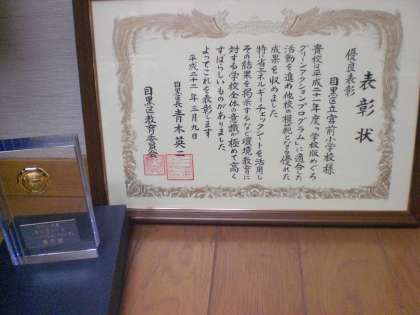 表彰状
優良表彰
目黒区立宮前小学校様
貴校は平成二十一年度「学校版めぐろ
グリーンアクションプログラム」に適合した
活動を進め他校の模範となる優れた
成果を収めました
特に省エネルギーチェックシートを活用し
その結果を掲示するなど環境教育に
対する学校全体の意識が極めて高く
すばらしいものがありました
よってこれを表彰します
平成二十二年三月九日
目黒区長 青木英二
目黒区教育委員会